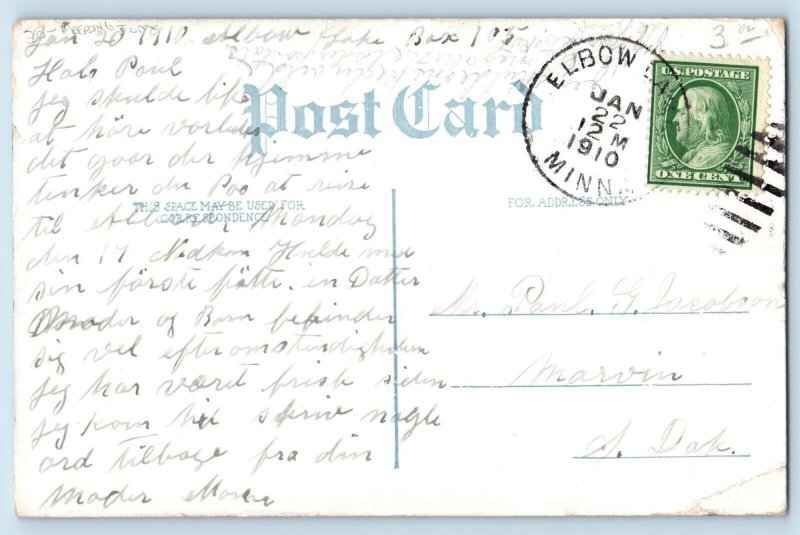 Jan 20 1910 Elbow Lake Box 105
3 00
Hals Paul
jeg skulde like
at höre vorledes
det goar der hjemme
tenker du Paa at reise
til Mandag
den 17 Nedkom Hulde med
sin förste födte. en Datter
Moder og Barn befinder
sig vel efter omstendigheden
jeg har været frisk siden
jeg kom hit skriv nogle
ord tilbage fra din
Moder
Post Card
THIS SPACE MAY BE USED FOR
CORRESPONDENCE
FOR ADDRESS ONLY
ELBOW LA
JAN
22
12 M
1910
MINN.
U.S. POSTAGE
ONE CENT
Mr. Paul. G. Jacobson
Marvin
S. Dak.